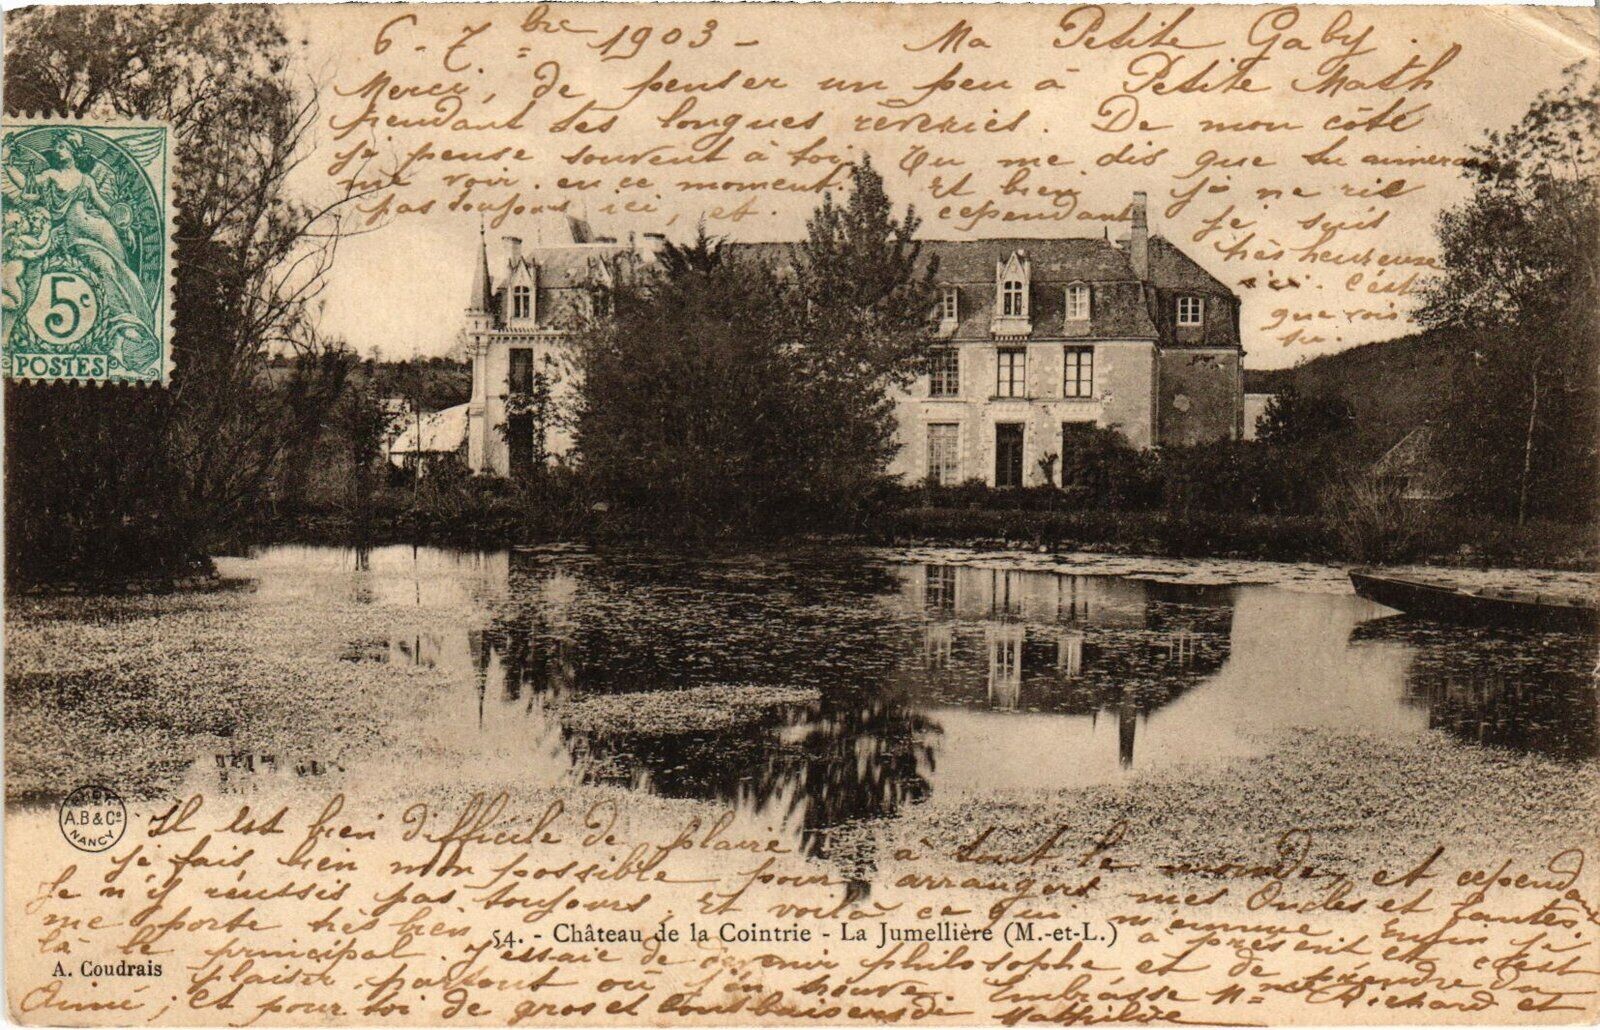 6 - 7bre 1903 - Ma Petite Gaby.
Merci, de penser un peu à Petite Math
pendant tes longues rêveries. De mon côté
je pense souvent à toi. Tu me dis que tu aimerais
me voir en ce moment. Et bien je ne rie
pas toujours ici, et cependant je suis
très heureuse
ici. C'est
que vois
tu.
5c
POSTES
A.B & Co
NANCY
Il est bien difficile de plaire à tout le monde, et cependant
je fais bien mon possible pour arranger mes Oncles et Tantes.
Je n'y réussis pas toujours. Et voilà ce qui m'ennuie. Enfin je
me porte très bien à présent et c'est
54. - Château de la Cointrie - La Jumellière (M.-et-L.)
là le principal. J'essaie de devenir philosophe et de prendre du
A. Coudrais
plaisir partout où j'en trouve. Embrasse Richard et
Aimé; et pour toi de gros et bons baisers de Mathilde